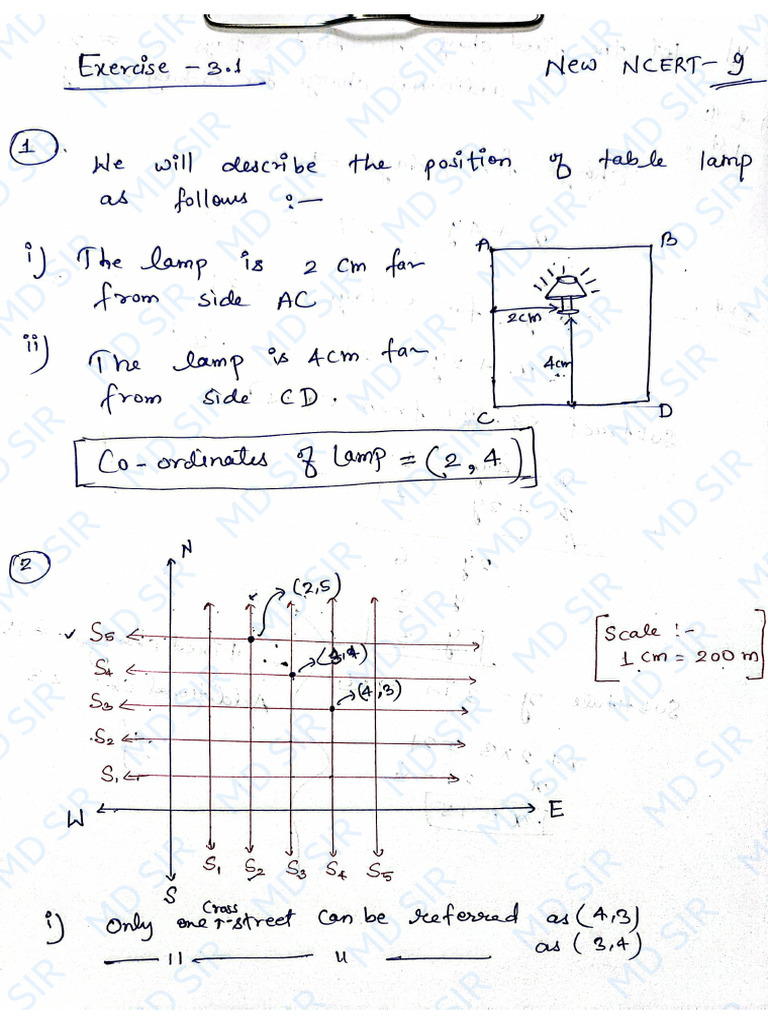 Exercise - 3.1
New NCERT - 9
1.
We will describe the position of table lamp
as follows :-
i) The lamp is 2 cm far
from side AC
ii) The lamp is 4cm far
from side CD.
A
B
2cm
4cm
C
D
Co-ordinates of lamp = (2,4)
2
N
(2,5)
S5
(4,4)
S4
(4,3)
S3
S2
S1
W
E
S1 S2 S3 S4 S5
S
[Scale :-
1 cm = 200 m]
i) Only one cross-street can be referred as (4,3)
—— 11 ——— u ——— as (3,4)
MD SIR